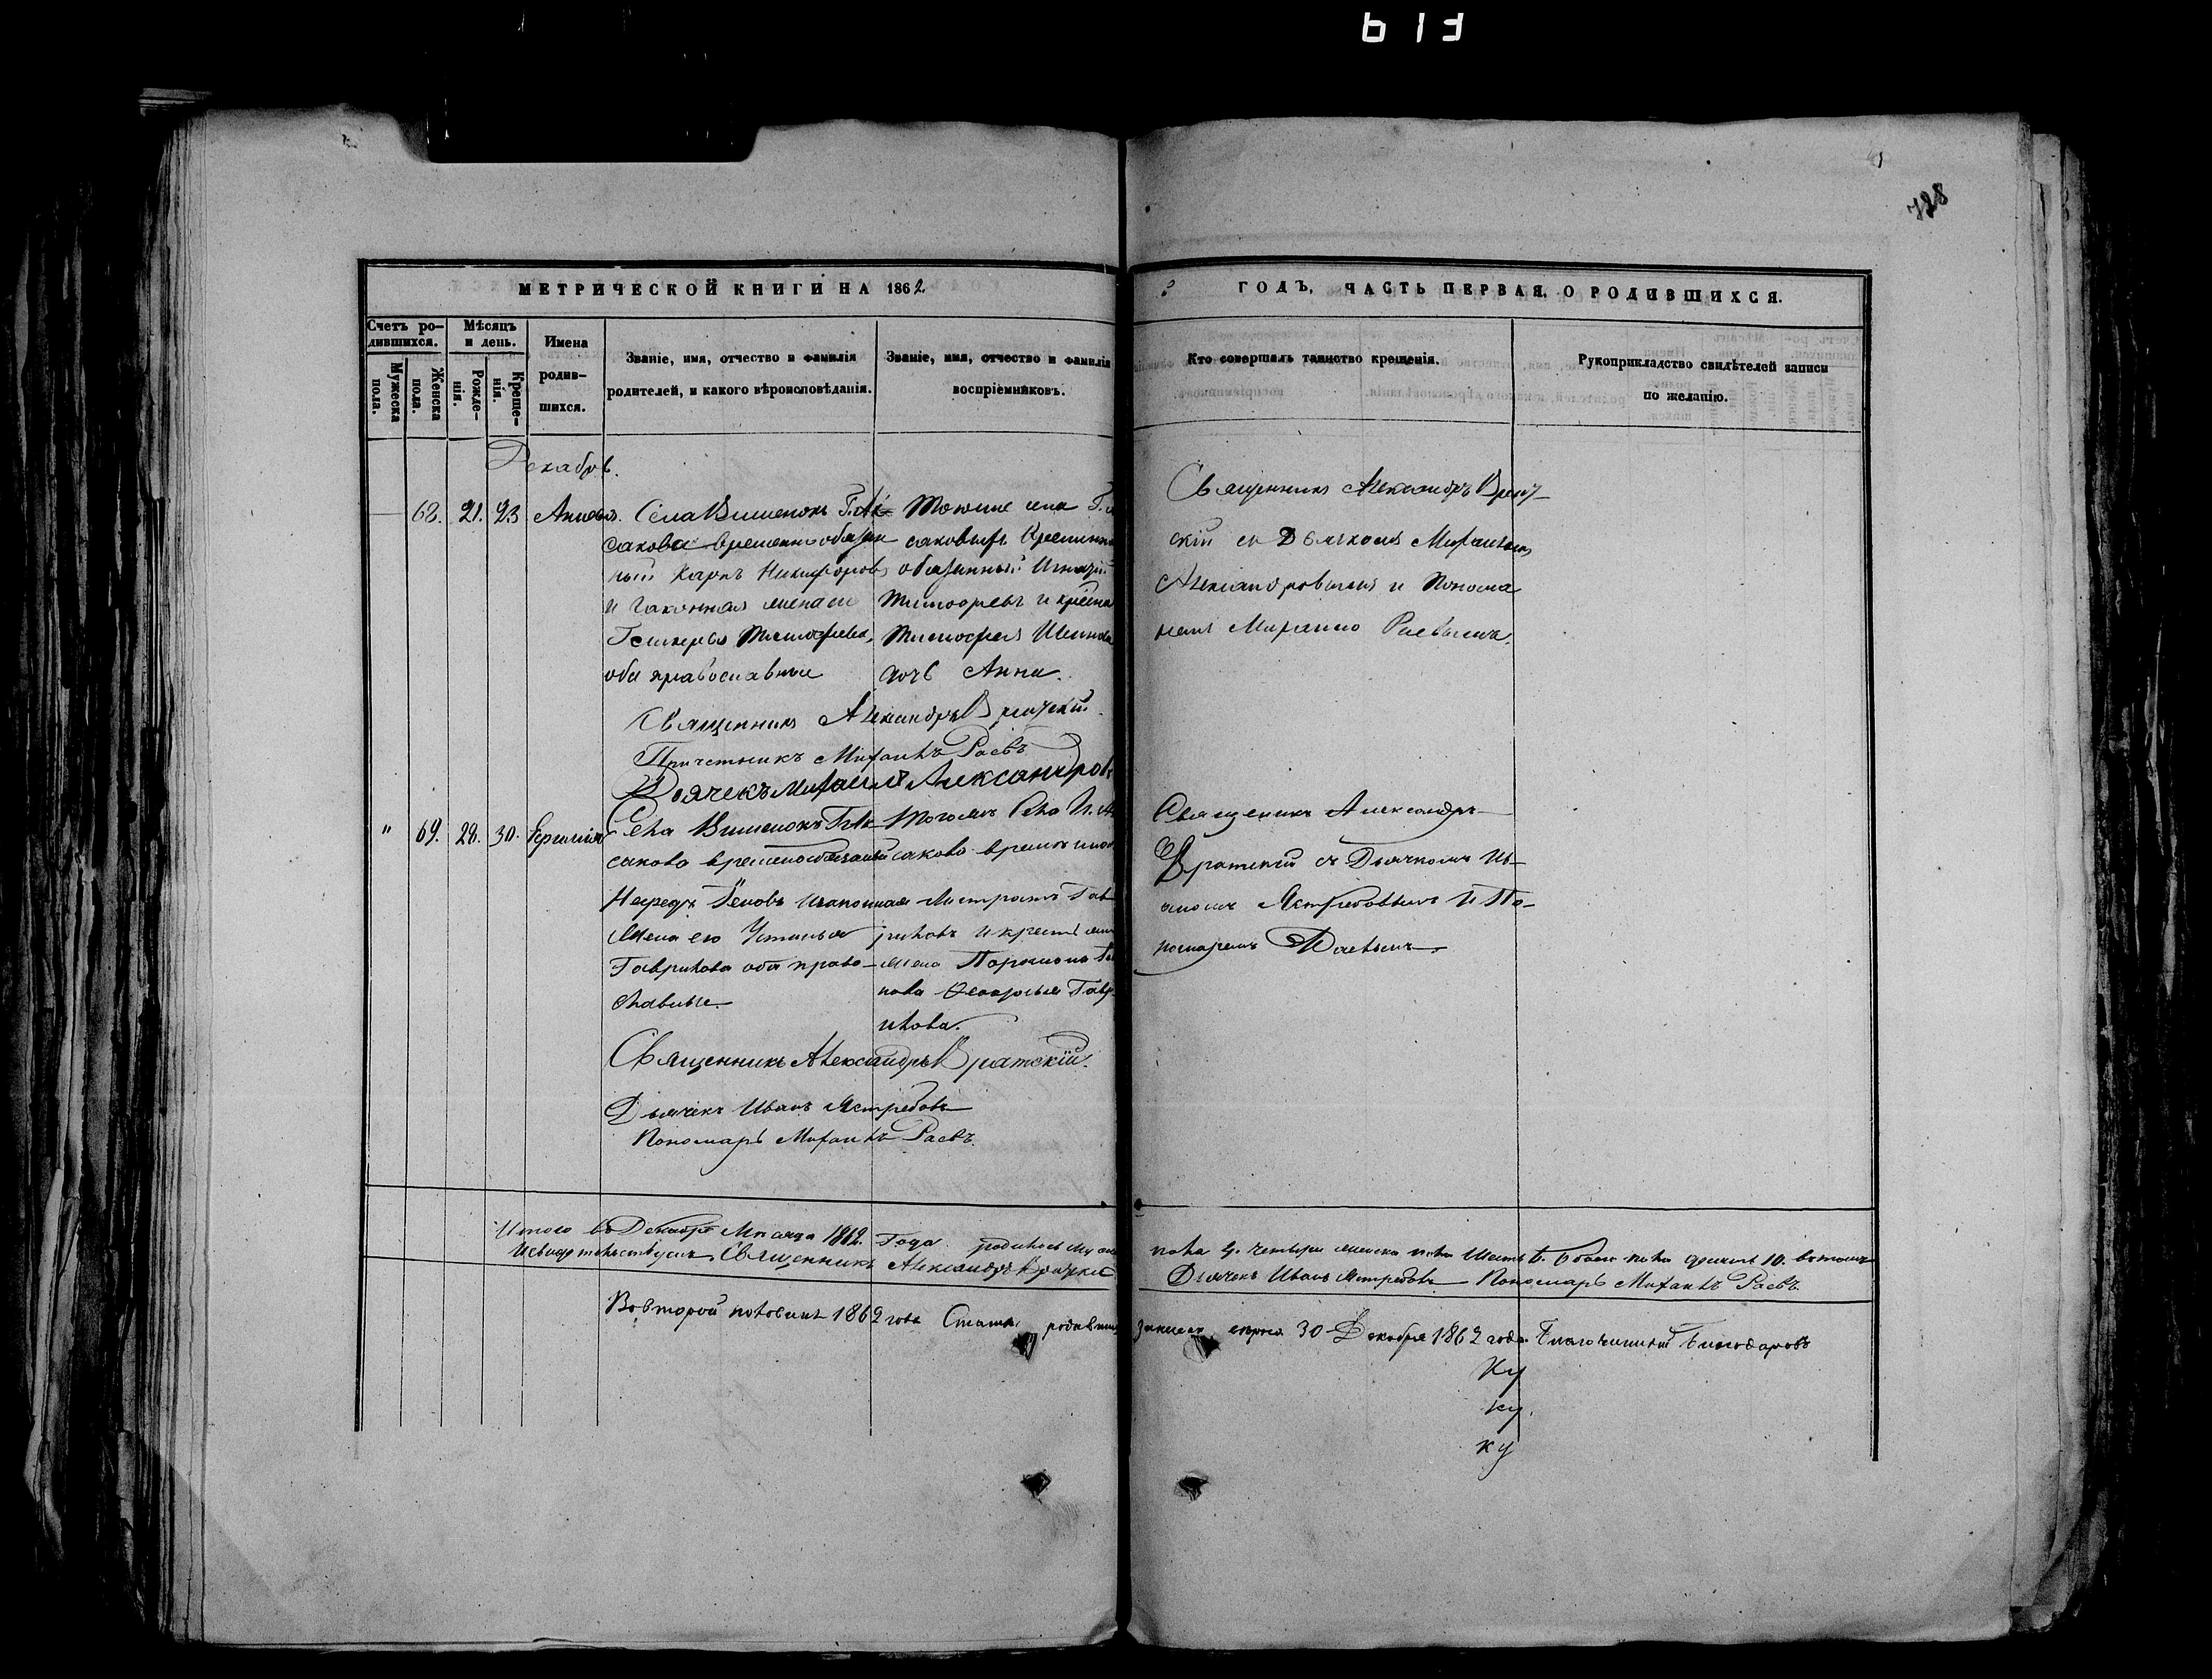 613
728
МЕТРИЧЕСКОЙ КНИГИ НА 1862.
ГОДЪ, ЧАСТЬ ПЕРВАЯ, О РОДИВШИХСЯ.
Счетъ ро-
дившихся.
Мужеска
пола.
Женска
пола.
Мѣсяцъ
и день.
Рожде-
нія.
Креще-
нія.
Имена
родив-
шихся.
Званіе, имя, отчество и фамилія
родителей, и какого вѣроисповѣданія.
Званіе, имя, отчество и фамилія
воспріемниковъ.
Кто совершалъ таинство крещенія.
Рукоприкладство свидѣтелей записи
по желанію.
Декабрь.
68. 21. 23
Села Вишенокъ Г. Ак-
сакова временнообязан
ный Карпъ Никифоровъ
и законная жена его
Гликерья Тимофѣева,
оба православные
саковыхъ временно
обязанный Игнатій
Тимофеевъ и крестья
Тимофея
дочь Анна.
Священникъ Александръ Врат-
скій съ Дьячкомъ Михаиломъ
Александровымъ и Понома
ремъ Михаиломъ Раевымъ.
Священникъ Александръ Вратскій.
Причетникъ Михаилъ Раевъ
Дьячекъ Михаилъ Александровъ
" 69. 28. 30.
Села Вишенокъ Г. Ак-
сакова временнообязаный
законная
жена его Устинья
Гаврилова оба право-
славные.
Тогожъ села
сакова времен
Гав
риловъ и крестьян
жена
нова Гавр
илова.
Священикъ Александръ
Вратский съ Дьячкомъ Ив-
аномъ Ястребовымъ и По-
номаремъ Раевымъ.
Священникъ Александръ Вратскій.
Дьячекъ Иванъ Ястребовъ
Пономарь Михаилъ Раевъ.
Итого въ Декабрѣ Мѣсяцѣ 1862. Года родилось муж
пола 4. четыре женска пола шесть 6. обоего пола десять 10. въ томъ
и свидѣтельствуемъ Священникъ Александръ Вратскій
Дьячекъ Иванъ Ястребовъ Пономарь Михаилъ Раевъ.
Во второй половинѣ 1862 года родивших
30 Декабря 1862 года Благочинный
Ку
ку.
ку